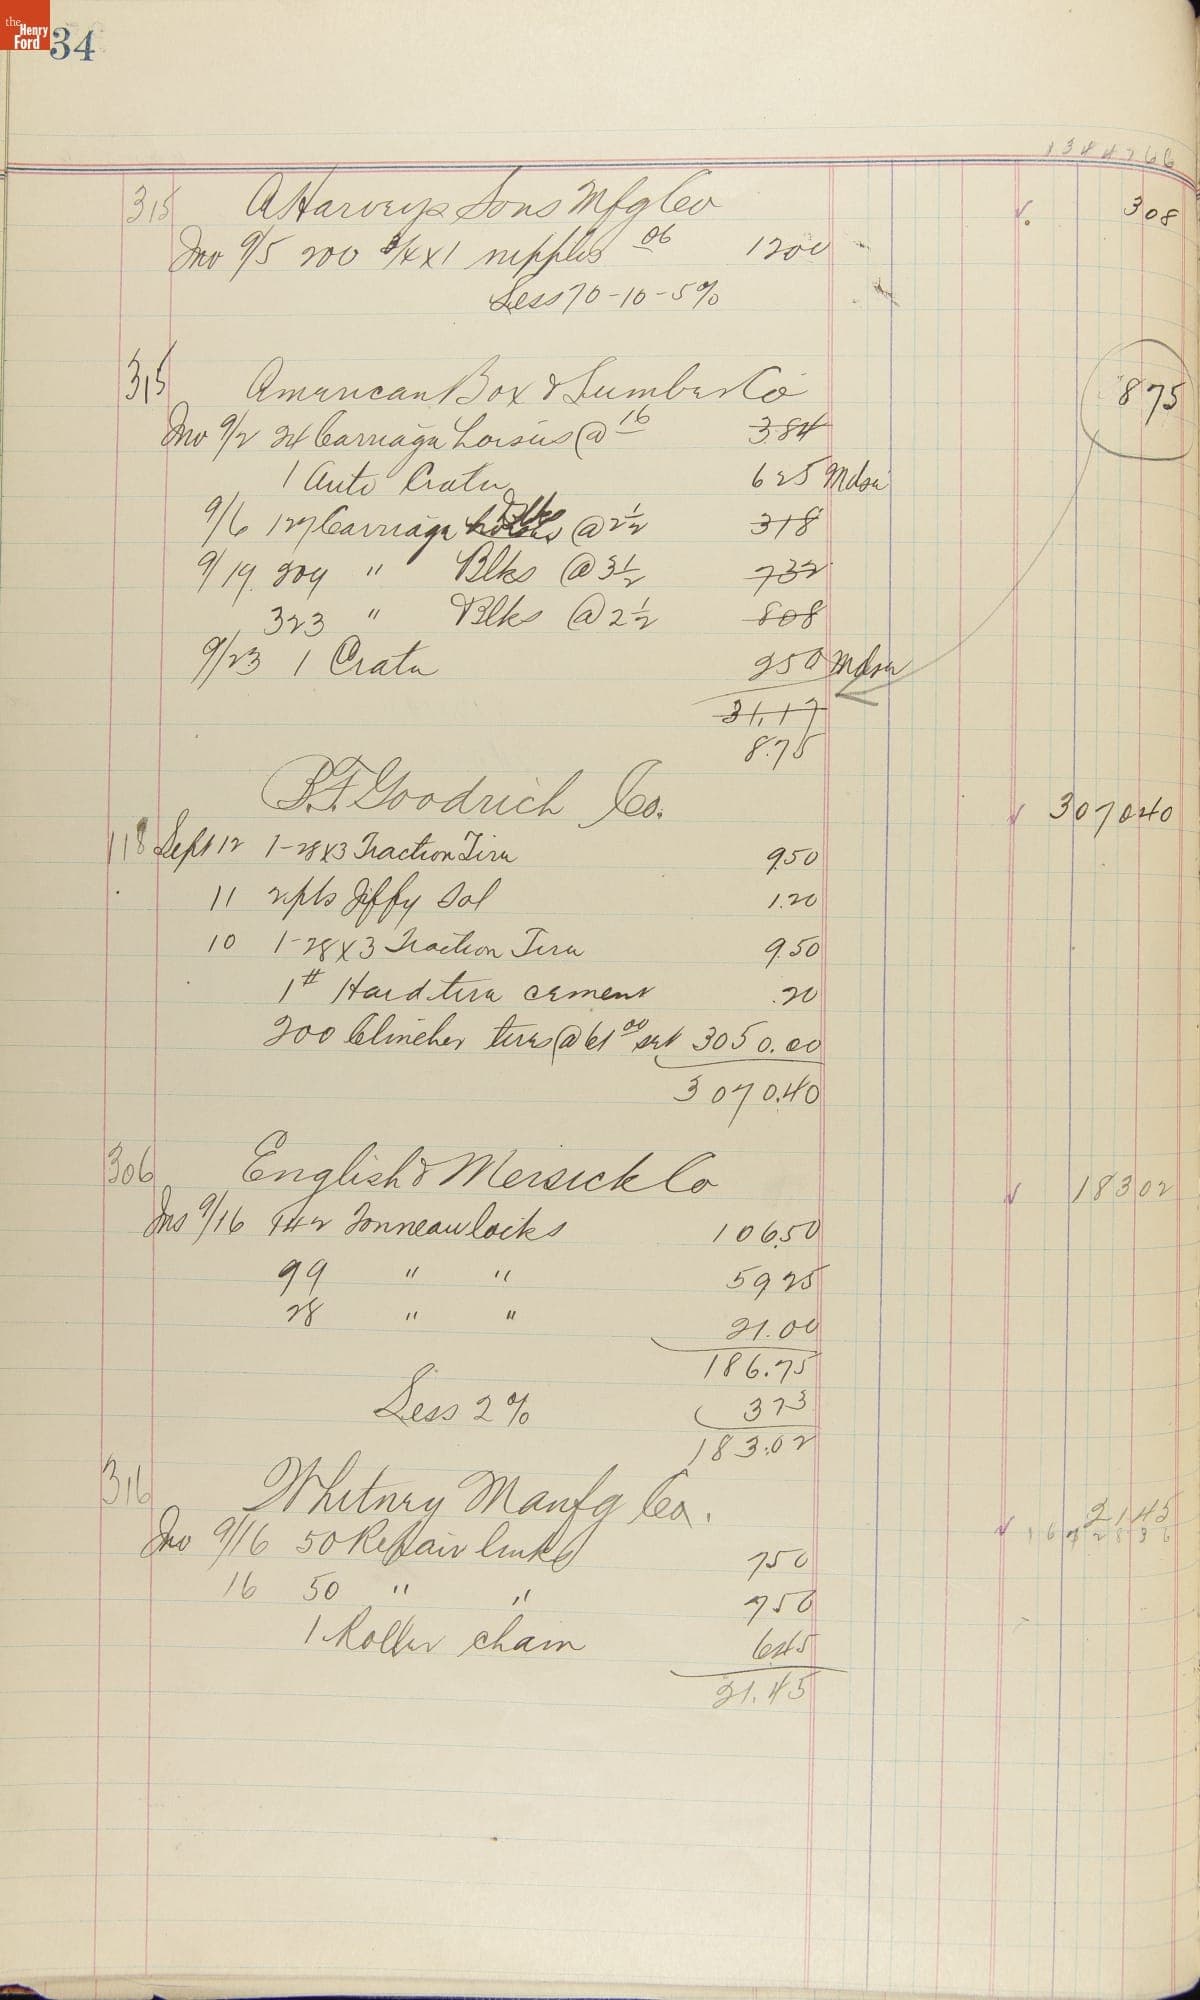 the Henry Ford
34
1384766
315 A Harveys Sons Mfg Co ✓. 308
Inv 9/5 200 3/4 x 1 nipples 06 1200
Less 70-10-5%
315 American Box & Lumber Co 875
Inv 9/2 24 Carriage @ 16 384
1 Auto Crate 625 Mdse
9/6 127 Carriage Blks @ 2 1/2 318
9/19 209 " Blks @ 3 1/2 732
323 " Blks @ 2 1/2 808
9/23 1 Crate 250 Mdse
31.17
8.75
B.F. Goodrich Co. ✓ 307040
118 Sept 12 1-28x3 Traction Tire 9.50
11 2 pts Jiffy Sol 1.20
10 1-28x3 Traction Tire 9.50
1# Hard tire cement .20
200 Clincher tires @ 61 00 set 3050.00
3070.40
306 English & Mersick Co ✓ 18302
Inv 9/16 142 Tonneau locks 106.50
99 " " 5925
28 " " 21.00
186.75
Less 2% 373
183.02
316 Whitney Manfg Co. ✓ 2145
Inv 9/16 50 Repair links 750
16 50 " " 750
1 Roller chain 645
21.45